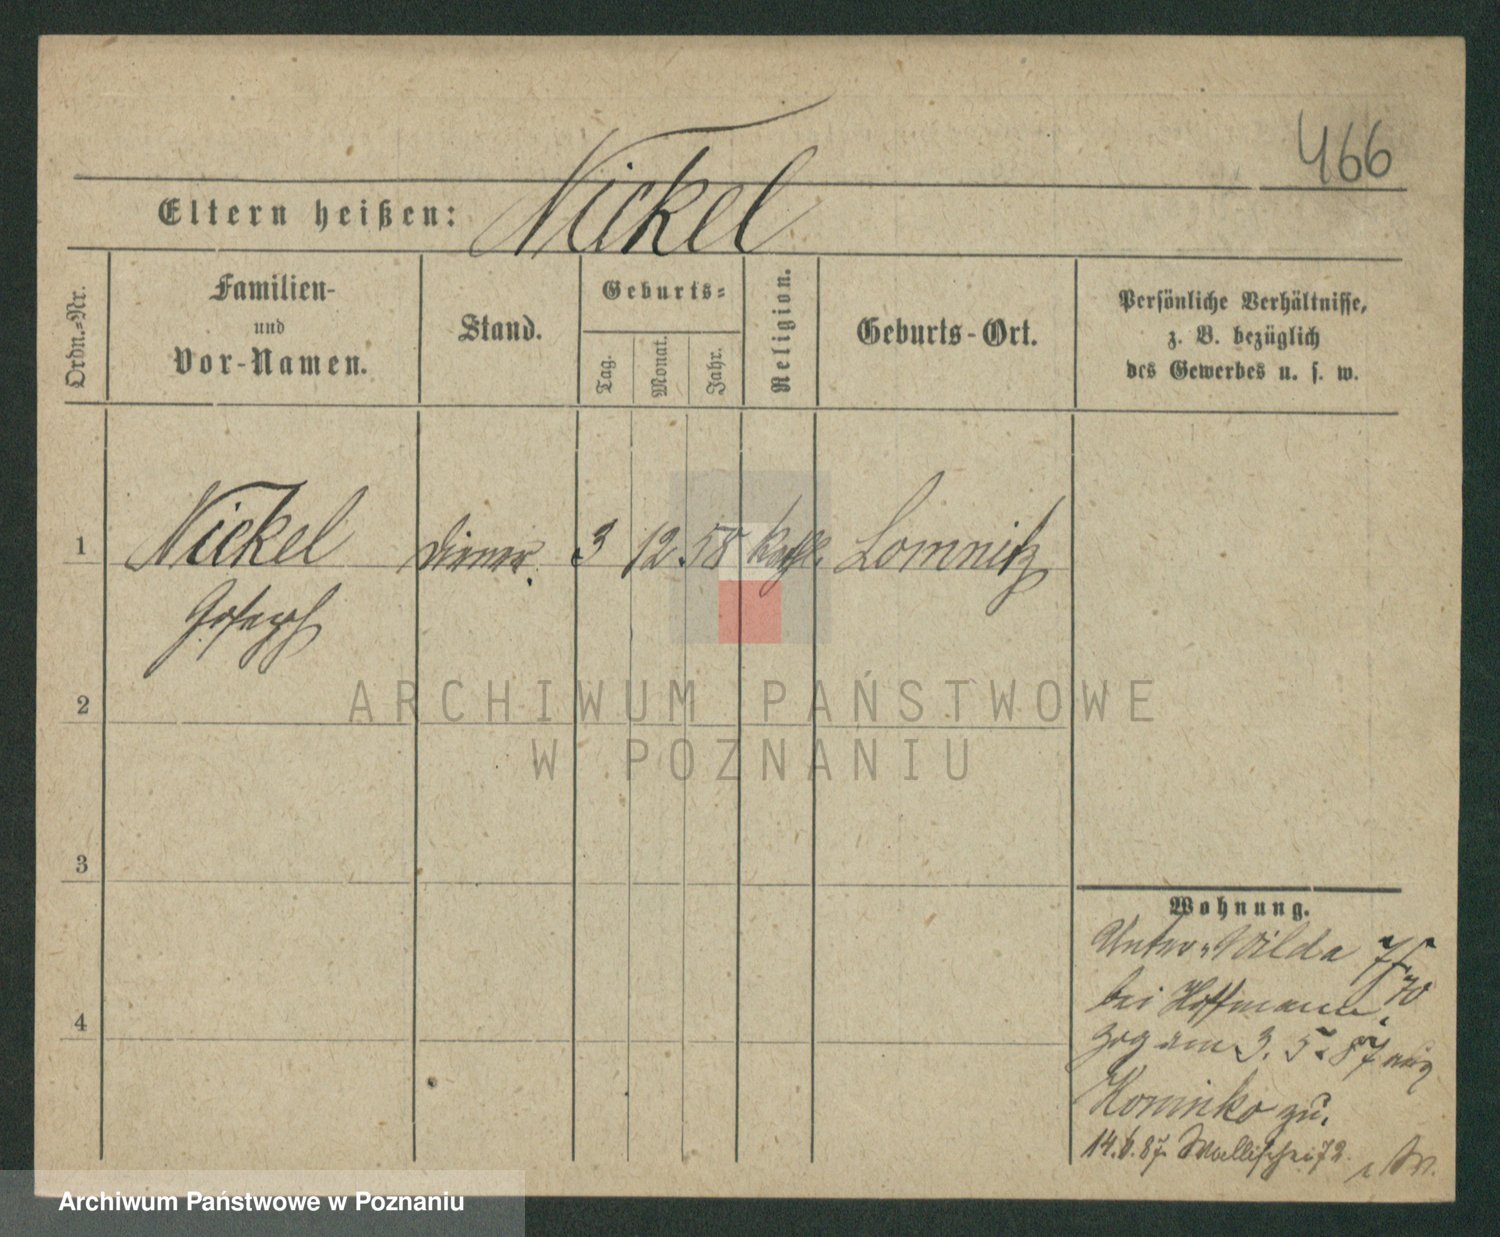 466
Eltern heißen: Nickel
Ordn.=Nr.
Familien-
und
Vor-Namen.
Stand.
Geburts=
Tag.
Monat.
Jahr.
Religion.
Geburts-Ort.
Persönliche Verhältnisse,
z. B. bezüglich
des Gewerbes u. s. w.
1 Nickel Diener. 3 12. 58 kath. Lomnitz
Joseph
2
3
4
ARCHIWUM PAŃSTWOWE
W POZNANIU
Wohnung.
Unter-Wilda 75
70
bei Hoffmann.
zog am 3. 5. 87 aus
zu.
14.6.87. Wallischei 72.
Archiwum Państwowe w Poznaniu